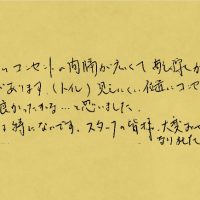 いコンセントの間隔が広くて
があります。(トイレ) 見えにくい位置にコンセ
良かったかな…と思いました。
は特にないです。スタッフの皆様、大変お
なりました